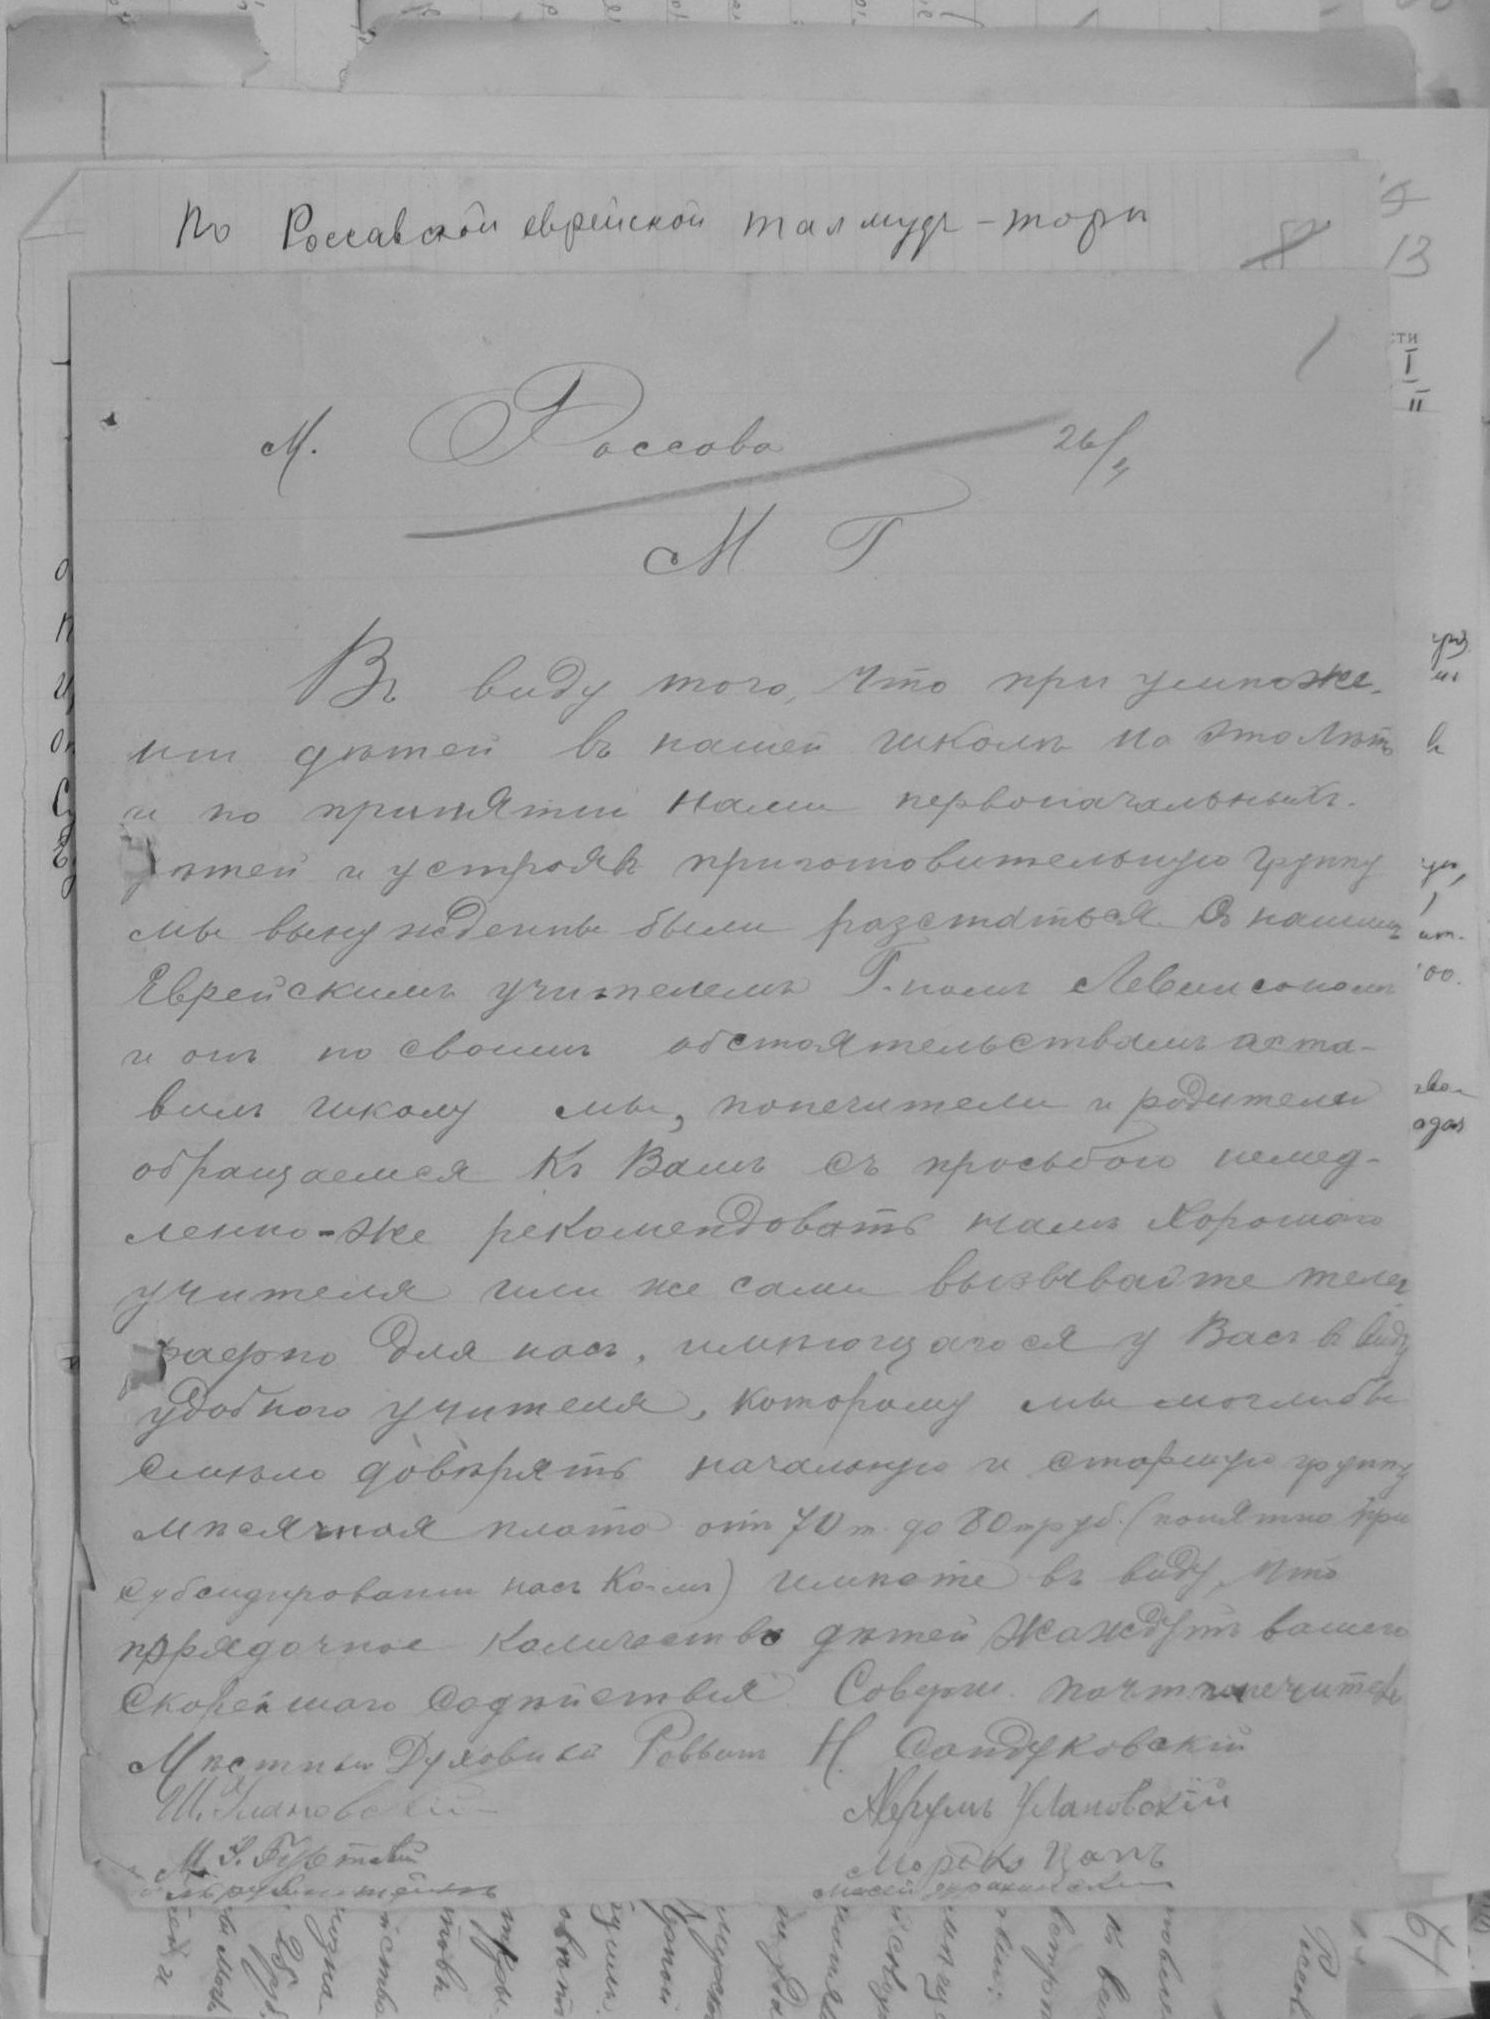 По Россавской еврейской талмудъ-торы
13
М. Россова 26/
М Г
Въ виду того, что при умноже-
нии дѣтей въ нашей школѣ на это лѣто
и по принятии нами первоначальныхъ
дѣтей и устрояя приготовительную группу
мы вынуждены были разстаться съ нашимъ
Еврейскимъ учителемъ Г-номъ Левинсономъ
и онъ по своимъ обстоятельствамъ аста-
вилъ школу мы, попечители и родители
обращаемся Къ Вамъ съ просьбою немед-
ленно-же рекомендовать намъ Хорошаго
учителя или же сами вызывайте телег
рафно для насъ, имѣющагося у Васъ въ виду
удобного учителя, которому мы моглибы
смѣло довѣрять начальную и старшую группу
мѣсячная плата отъ 70 т. до 80 т руб. (понятно при
субсидировании насъ Ком.) имѣете въ виду, что
порядочное Количество дѣтей Жаждутъ вашего
Скорейшаго Содѣйствия. Соверш. почт попечитель
Мѣстный Духовный Раввинъ Н. Сандуковский
Ш. Улановский
Улановский
Мордко Цапъ